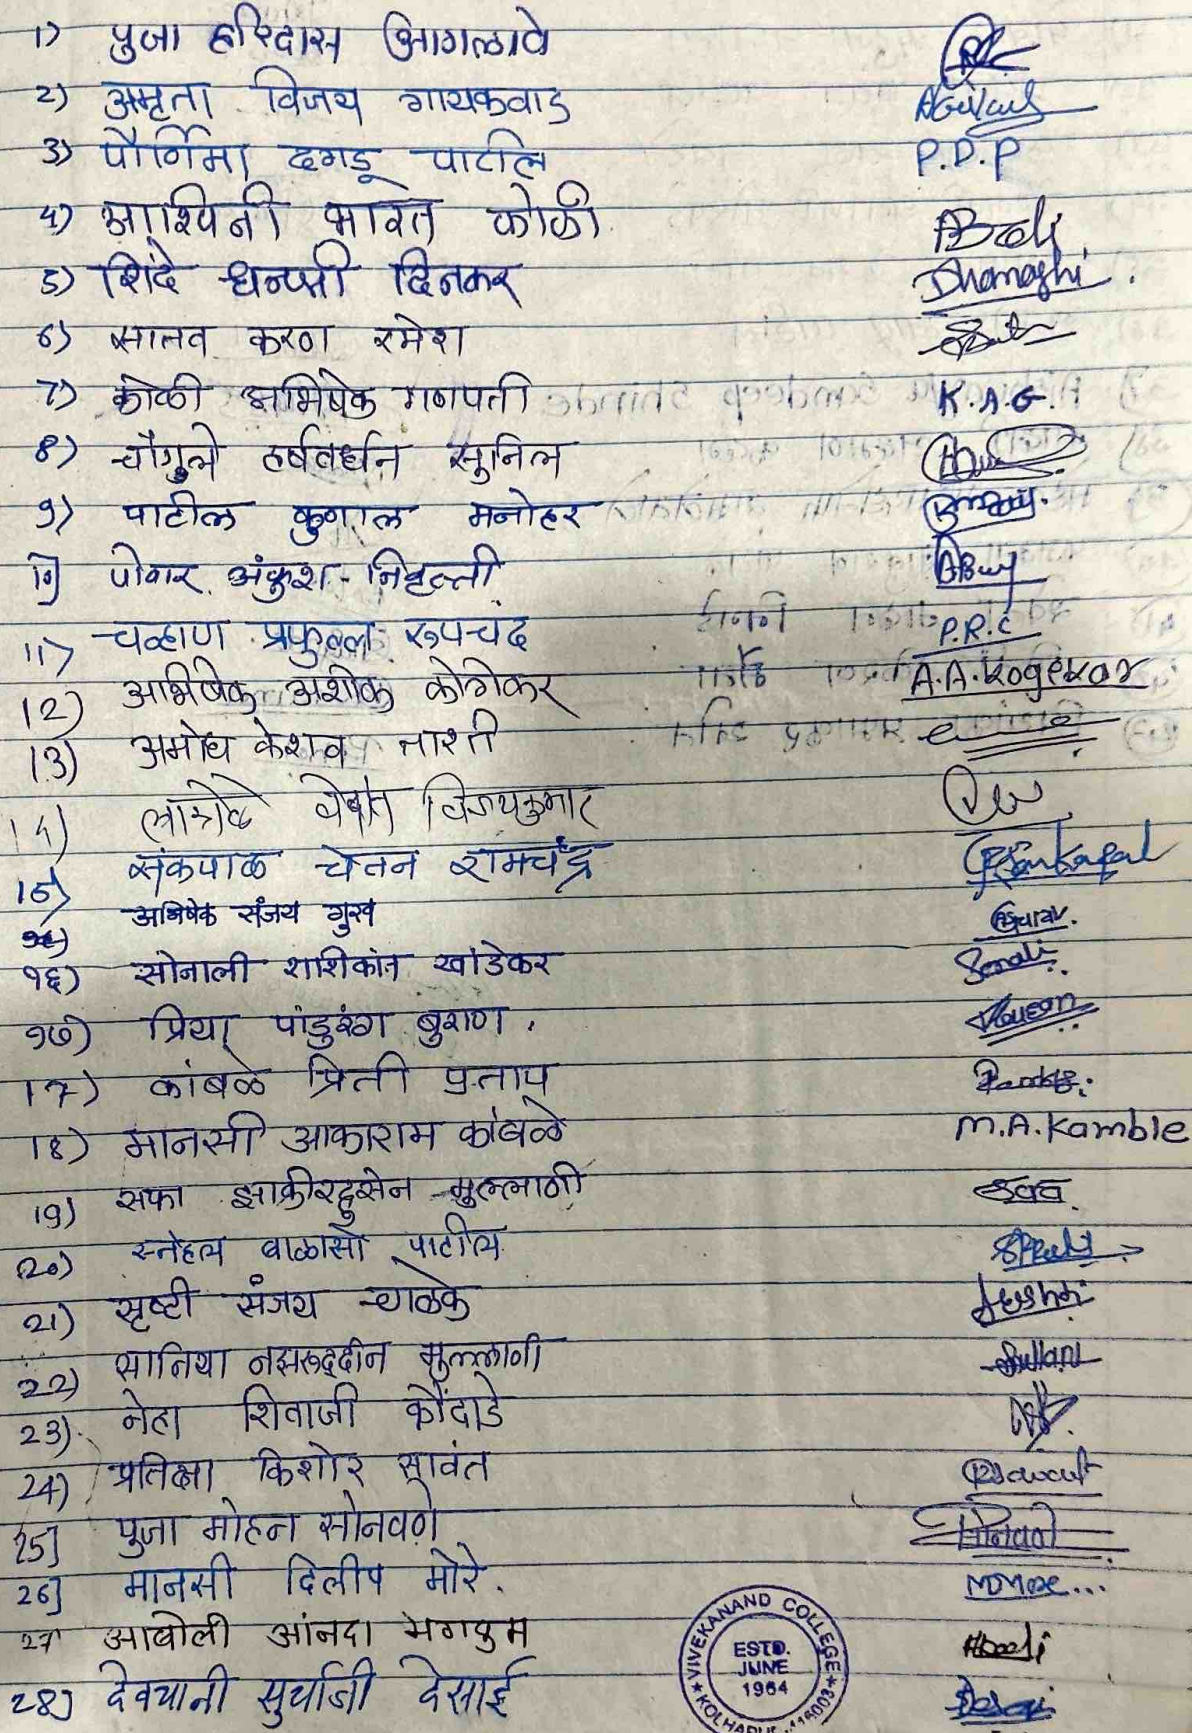 1) पुजा हरिदास आगलावे
2) अमृता विजय गायकवाड AGaikwad
3) पौर्णिमा दगडू पाटील P.D.P
4) आश्विनी भारत कोळी
5) शिंदे धनश्री दिनकर Dhanashri.
6) सालव करण रमेश
7) कोळी अभिषेक गणपती K.A.G.
8) चौगुले हर्षवर्धन सुनिल
9) पाटील कुणाल मनोहर
10) पोवार अंकुश निवृत्ती
11) चव्हाण प्रफुल्ल रुपचंद P.R.C
12) अभिषेक अशोक कोगेकर A.A.Kogekar
13) अमोघ केशव नारती
14) वेदांत विजयकुमार
15) संकपाळ चेतन रामचंद्र Sankapal
अभिषेक संजय गुरव Gurav.
१६) सोनाली शशिकांत खांडेकर Sonali
१७) प्रिया पांडुरंग बुराण.
17) कांबळे प्रिती प्रताप
18) मानसी आकाराम कांबळे M.A.Kamble
19) सफा झाकीरहुसेन मुल्लाणी
20) स्नेहल बाळासो पाटील
21) सृष्टी संजय चाळके
22) सानिया नझरुद्दीन मुल्लाणी
23) नेहा शिवाजी कौंदाडे
24) प्रतिक्षा किशोर सावंत
25] पुजा मोहन सोनवणे
26] मानसी दिलीप मोरे.
27 आबोली आंनदा मगदुम
28) देवयानी सुर्याजी देसाई Desai
VIVEKANAND COLLEGE
ESTD.
JUNE
1964